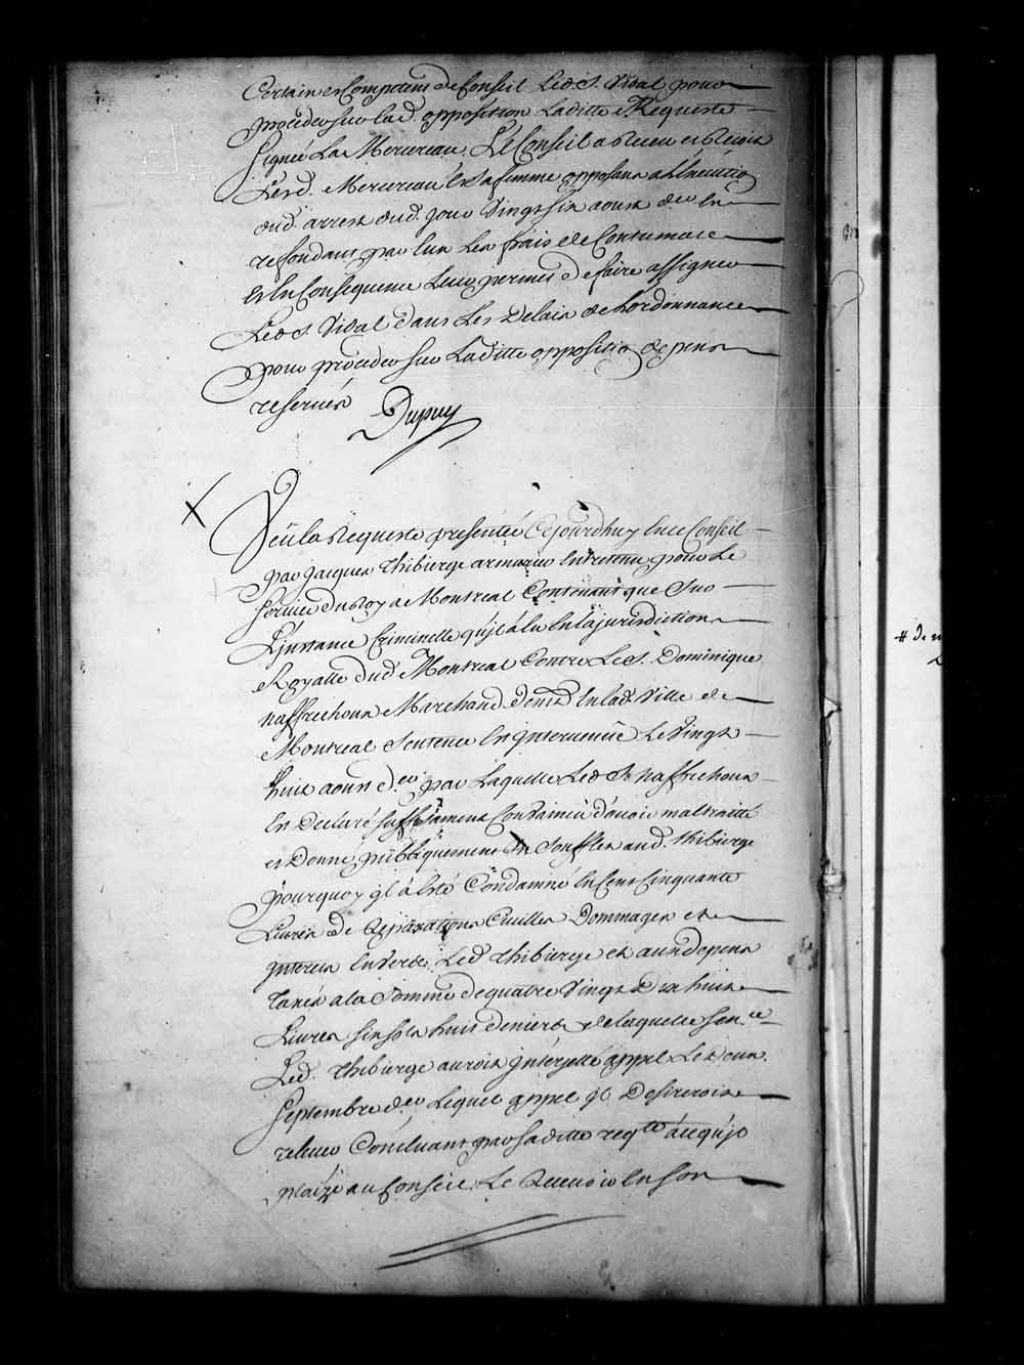 Certain et Competent de Conseil Led. S. Vidal pour
proceder sur lad. opposition Laditte Requeste
signée La Mercereau, Le Conseil a Receu et Recoit
Lesd. Mercereau et sa femme opposans a L'execution
dud. arrest dud. jour Vingt six aoust der. en
refondant par eux Les frais de Contumace
et en Consequence Leur permet de faire assigner
Led. S. Vidal dans Les Delais de Lordonnance
pour proceder sur Laditte opposition depens
reservés Dupuy
X
Veu la Requeste presentée Cejourdhuy en ce Conseil
par Jacques Thibierge armurier entretenu pour Le
service du Roy a Montreal Contenant que Sur
L'jnstance Criminelle qu'jl a eu en la jurisdiction
Royalle dud. Montreal Contre Le S. Dominique
Naffrechoux Marchand demt. en lad. Ville de
Montreal Sentence Est jntervenüe Le Vingt
huit aoust d.er par Laquelle Led. S. Naffrechoux
Est Declaré suffisament Convaincu d'avoir maltraitté
et Donné publiquement Un Soufflet aud. Thibierge
pourquoy jl a Esté Condamné en Cent Cinquante
Livres de Reparations Civilles Dommages et
jnterets envers Led. Thibierge et aux depens
taxés a la Somme de quatre Vingt Dix huit
Livres six sols huit deniers de laquelle Sen.ce
Led. Thibierge auroit jnterjetté appel Le Deux
Septembre d.er Lequel appel jl Desireroit
relever Concluant par Saditte req.te a ce qu'jl
plaize au Conseil Le Recevoir en Son
# De